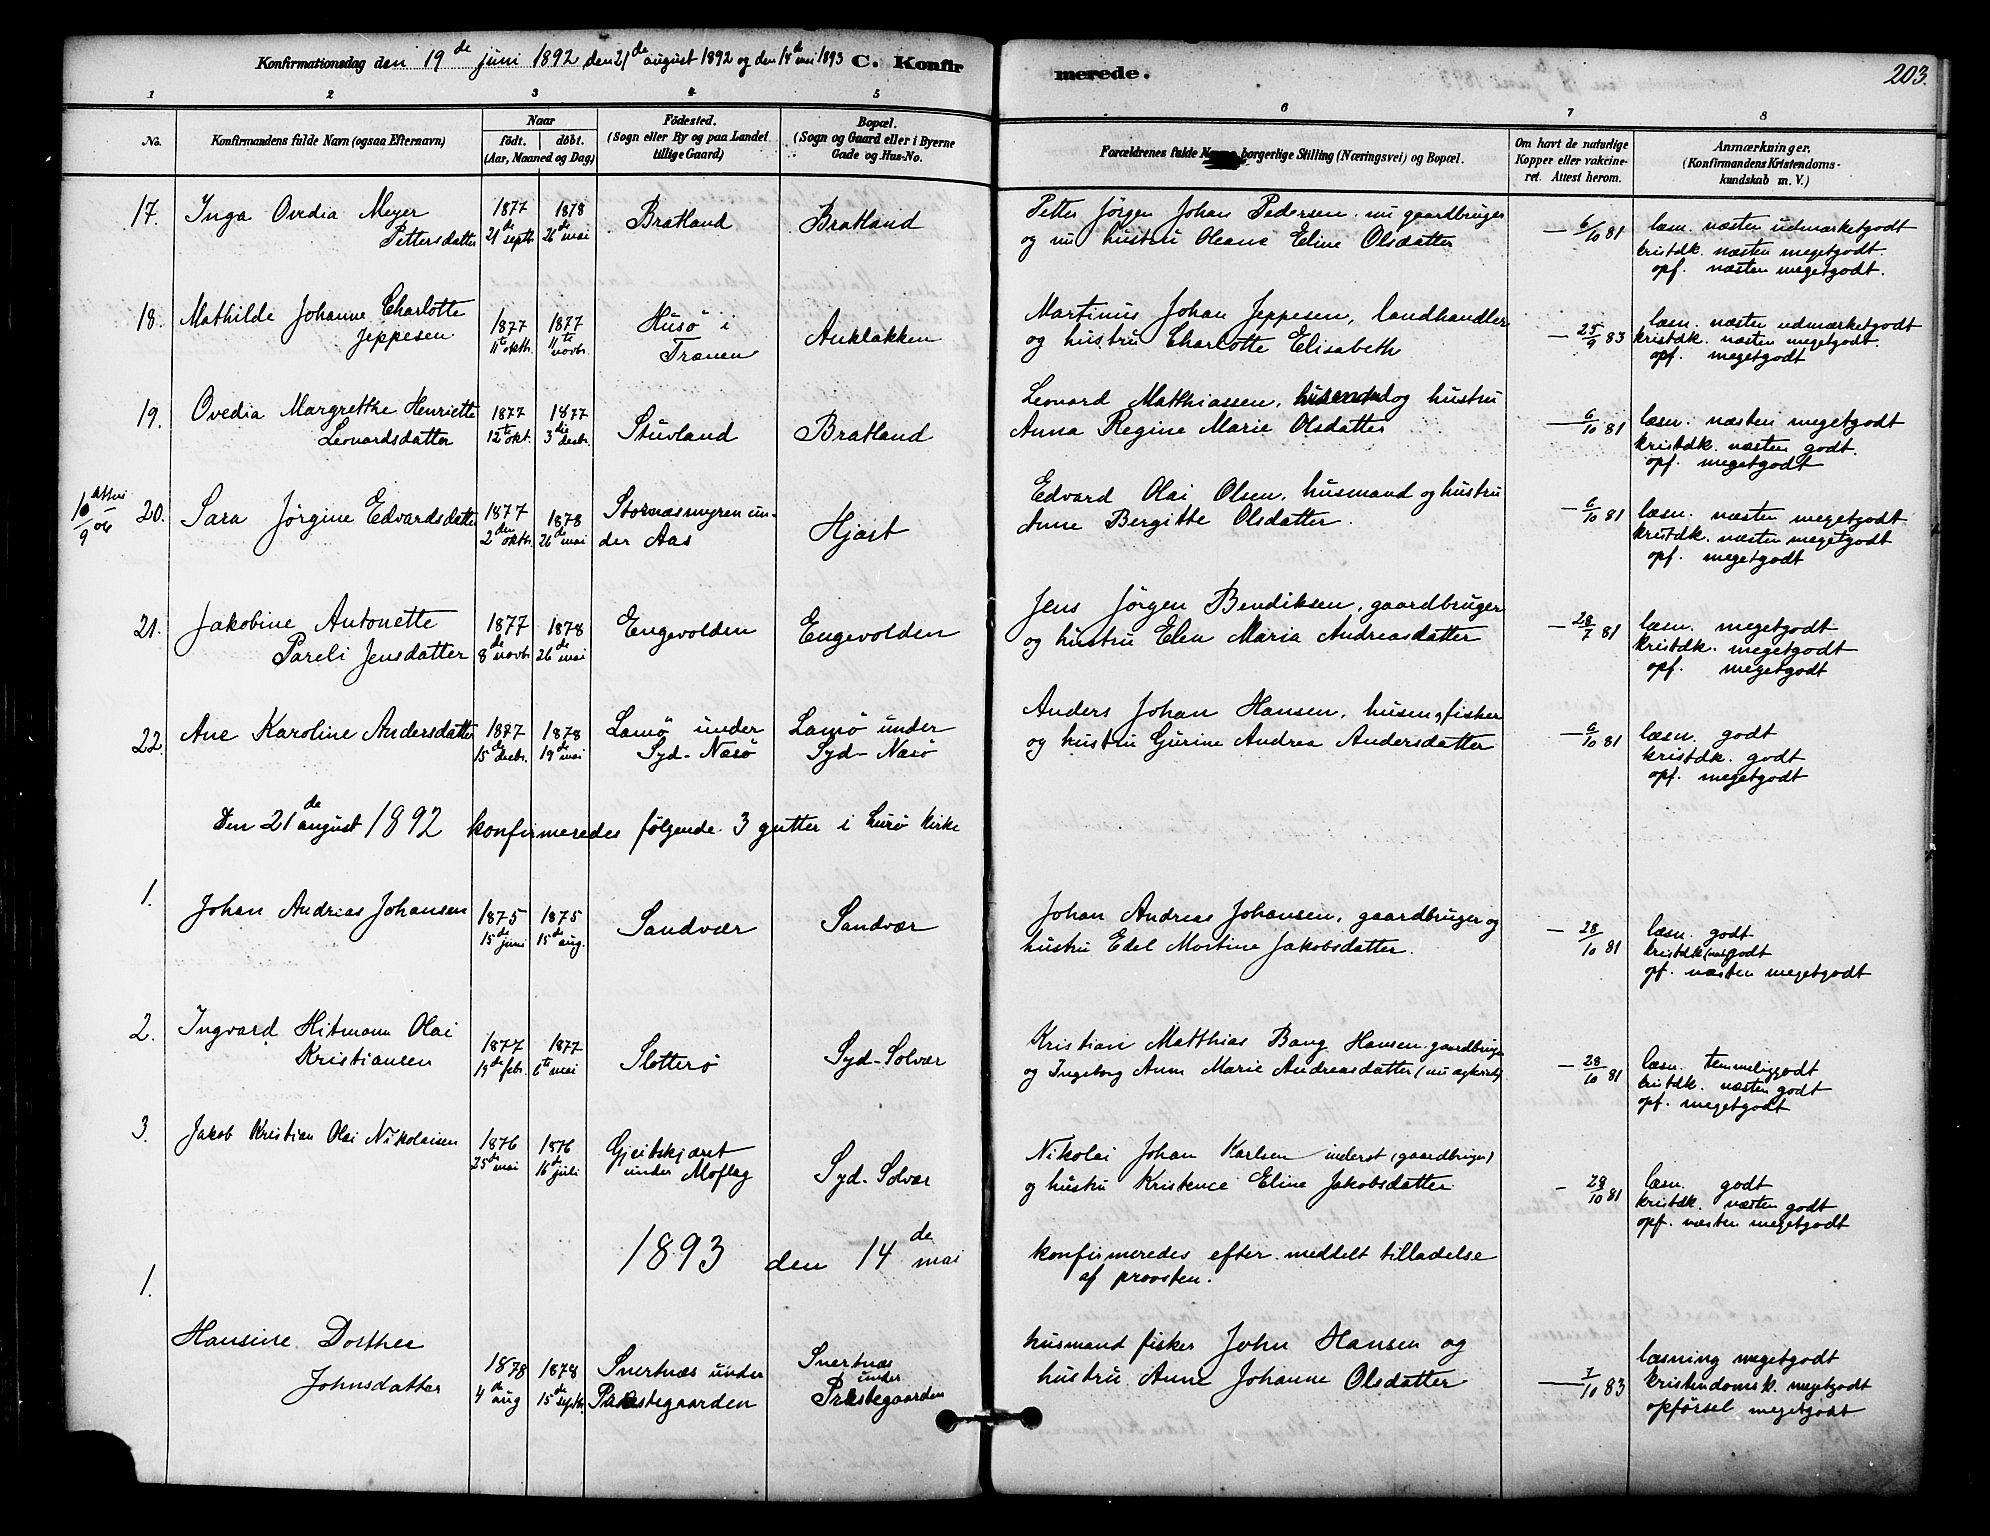 Konfirmationsdag den 19de juni 1892 den 21de august 1892 og den 14de mai 1893 C. Konfirmerede. 203.
1 2 3 4 5 6 7 8
No. Konfirmandens fulde Navn (ogsaa Efternavn) Naar födt. döbt. (Aar, Maaned og Dag) Födested. (Sogn eller By og paa Landet tillige Gaard) Bopæl. (Sogn og Gaard eller i Byerne Gade og Hus-No. Forældrenes fulde borgerlige Stilling (Næringsvei) og Bopæl. Om havt de naturlige Kopper eller vakcineret. Attest herom. Anmærkninger. (Konfirmandens Kristendomskundskab m. V.)
17. Inga Ovedia Meyer 1877 1878 Bratland Bratland Petter Jörgen Johan Pedersen nu gaardbruger 6/10 81 læsn. næsten udmærketgodt
Pettersdatter 21de septb. 26de mai og nu hustru Oleane Eline Olsdatter kristdk. næsten megetgodt.
opf. næsten megetgodt.
18. Mathilde Johanne Charlotte 1877 1877 Husö i Anklakken Martinus Johan Jeppesen, landhandler 25/9 83 læsn. næsten udmærketgodt
Jeppesen 11te oktbr. 11te novbr. Tranen og hustru Charlotte Elisabeth kristdk. næsten megetgodt.
opf. megetgodt
19. Ovedia Margrethe Henriette 1877 1877 Stuvland Bratland Leonard Matthiassen, husmand og hustru 6/10 81 læsn. næsten megetgodt
Leonardsdatter 12te okt. 3die decbr. Anna Regine Marie Olsdatter kristdk. næsten godt.
opf. megetgodt
10/9 06 20. Sara Jørgine Edvardsdatter 1877 1878 Stornæsmyren un- Hjart Edvard Olai Olsen, husmand og hustru 6/10 81 læsn. næsten megetgodt
2den oktbr. 26de mai der Aas Anne Bergitte Olsdatter. kristdk. næsten megetgodt
opf. megetgodt
21. Jakobine Antonette 1877 1878 Engevolden Engevolden Jens Jörgen Bendiksen, gaardbruger 28/7 81 læsn. megetgodt
Pareli Jensdatter 8de novb. 26de mai og hustru Elen Maria Andreasdatter kristdk. megetgodt
opf. megetgodt
22. Ane Karoline Andersdatter 1877 1878 Lamö under Lamö under Anders Johan Hansen, husm, fisker 6/10 81 læsn. godt
15de decbr. 19de mai Syd-Næsö Syd-Næsö og hustru Gurine Andrea Andersdatter kristdk. godt
opf. megetgodt
Den 21de august 1892 konfirmeredes følgende 3 gutter i Lurø kirke
1. Johan Andreas Johansen 1875 1875 Sandvær Sandvær Johan Andreas Johansen, gaardbruger og 28/10 81 læsn. godt
15de juni 15de aug. hustru Edel Martine Jakobsdatter. kristdk godt
opf. næsten megetgodt
2. Ingvard Hitmann Olai 1877 1877 Slotterö Syd-Solvær Kristian Matthias Bang Hansen gaardbruger 28/10 81 læsn. temmeliggodt
Kristiansen 19de febr. 6te mai og Ingeborg Anne Marie Andreasdatter kristdk. næsten godt
opf. megetgodt
3. Jakob Kristian Olai Nikolaisen 1876 1876 Gjeitskjæret Syd-Solvær Nikolai Johan Karlsen inderst (gaardbruger) 28/10 81 læsn. godt
25de mai 16de juli under Moflag og hustru Kristence Eline Jakobsdatter kristdk. næsten godt
opf. næsten megetgodt
1893 den 14de mai konfirmeredes efter meddelt tilladelse
af provsten.
1. Hansine Dorthee 1878 1878 Snertnæs under Snertnæs under husmand fisker John Hansen og 7/10 83 læsning megetgodt
Johnsdatter 4de aug 15de septbr. Præstegaarden Præstegaarden hustru Anne Johanne Olsdatter kristendomsk. megetgodt
opførsel megetgodt